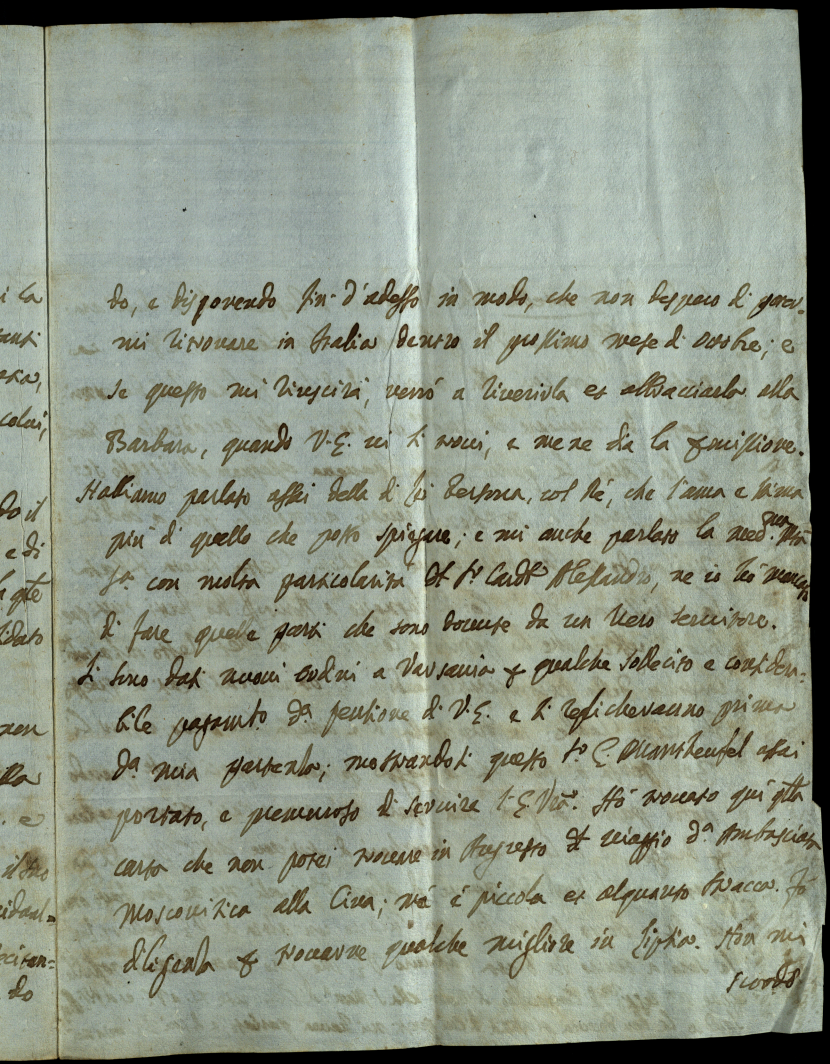 i la
do, e disponendo fin d'adesso in modo, che non despero di poter-
mi ritrovare in Italia dentro il prossimo mese di Ottobre; e
se questo mi riuscirà, verrò a riverirla et abbracciarla alla
colui,
Barbara, quando V.E. vi si trovi, e me ne dia la permissione.
Habbiamo parlato assai della di Lei Persona, col Rè, che l'ama e stima
do il
più di quello che posso spiegare; e mi anche parlato la med.ma Mtà
e di
S.a con molta particolarità del S.r Card.l Alessandro, ne io hò mancato
di fare quelle parti che sono dovute da un vero servitore.
Si sono dati nuovi ordini a Varsavia per qualche sollecito e consider-
bile pagam.to d.a pensione di V.E. e si replicheranno prima
non
d.a mia partenza; mostrandosi questo S.r C. Manteufel assai
portato, e premuroso di servire l'E.V.ra. Hò trovato quì q.lla
. e
carta che non potei trovare in Augusto del viaggio d.a Ambasciata
il suo
Moscovitica alla Cina; mà è piccola et alquanto stracca. Fò
diligenza per trovarne qualche migliore in Lipsia. Non mi
do
scordo